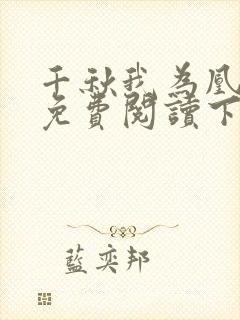 千秋我为凰
免費閱讀下
藍奕邦